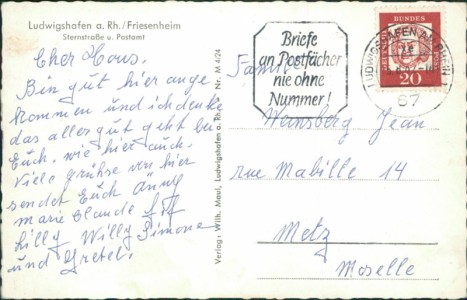 Ludwigshafen a. Rh./Friesenheim
Sternstraße u. Postamt
Cher Hous,
Bin gut hier ange-
kommen und ich denke
das alles gut geht bei
Euch, wie hier auch.
Viele grühse von hier
sendet Euch
marie Claude
Lilly Willy Simone
und Gretel.
Verlag: Wilh. Maul, Ludwigshafen a. Rh. Nr. M 4/24
Briefe
an Postfächer
nie ohne
Nummer!
LUDWIGSHAFEN AM RHEIN
67
DEUTSCHE BUNDESPOST
20
Famille
Weinsberg Jean
rue Mabille 14
Metz
Moselle